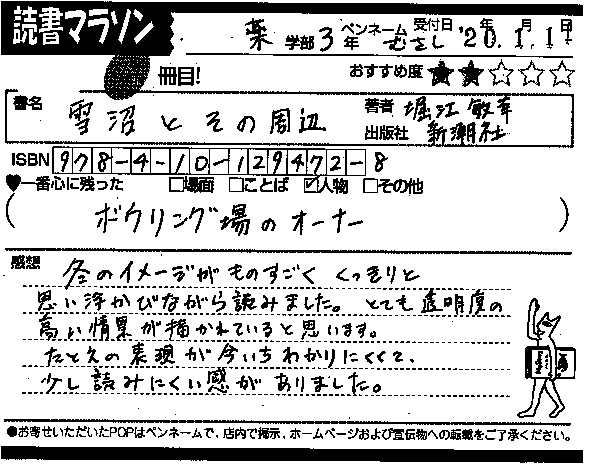 読書マラソン
薬 学部 3年 ペンネーム むさし 受付日 '20年 1月 1日
冊目! おすすめ度 ★★☆☆☆
書名 雪沼とその周辺 著者 堀江敏幸
出版社 新潮社
ISBN 978-4-10-129472-8
♥一番心に残った □場面 □ことば ☑人物 □その他
(ボウリング場のオーナー)
感想 冬のイメージがものすごくくっきりと
思い浮かびながら読みました。とても透明度の
高い情景が描かれていると思います。
たとえの表現が今いちわかりにくくて、
少し読みにくい感がありました。
●お寄せいただいたPOPはペンネームで、店内で掲示、ホームページおよび宣伝物への転載をご了承ください。